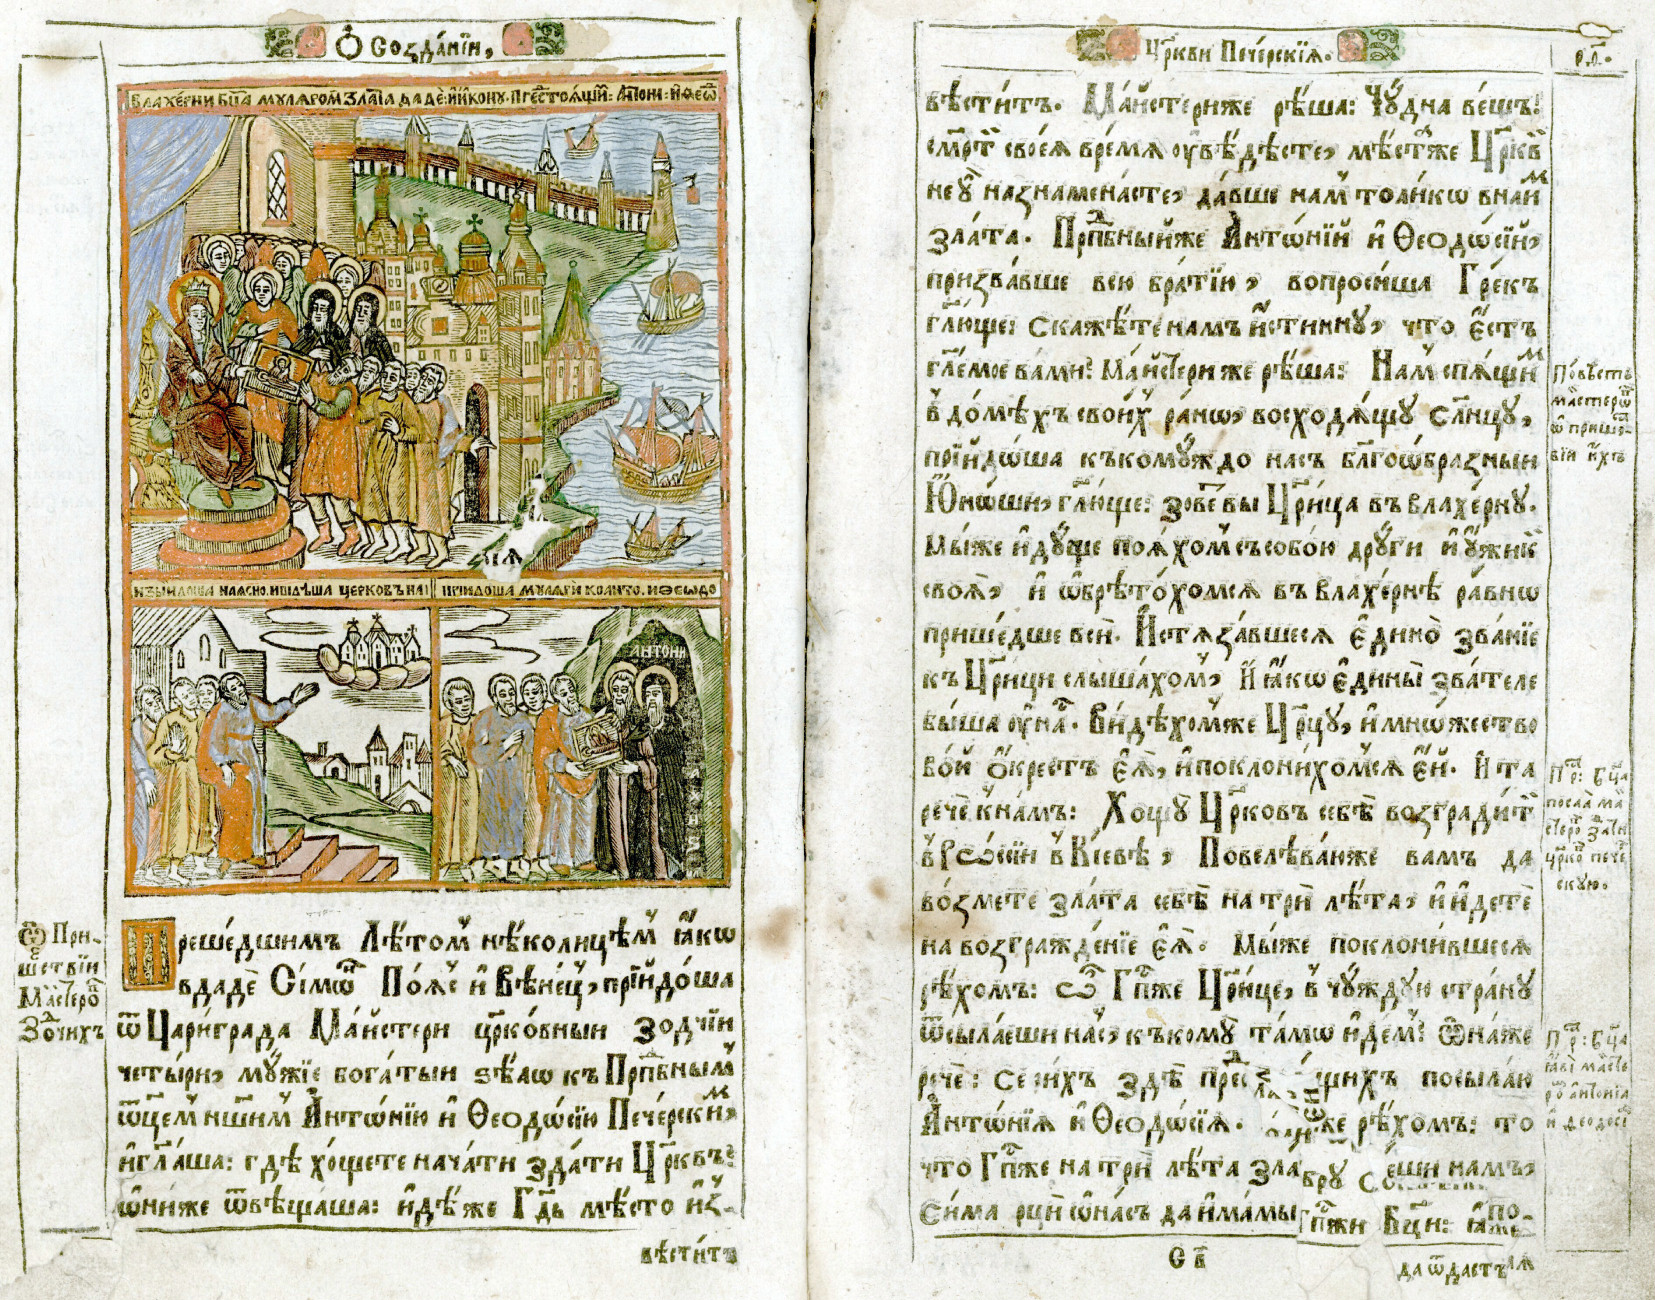 Ѽ Созда́нїи,
ВЛАХЕ́РНИ БЦ҃А МУЛѦРОМ ЗЛАТА ДАДЀ: И И҆КОНУ
ИЗЫИДОША НАѦСНО. И ВИДѢША ЦЕРКОВЪ НА
ПРИИДОША МУЛѦРИ КО АНТО. И ѲЕѠДО
АНТОНИ
Преше́дшимъ Лѣ́томꙿ нѣ́колицѣмꙿ ꙗ҆́кѡ
вдадѐ Сі́мѡⷩ По́ѧсꙿ и҆ Вѣне́цꙿ, прїидо́ша
ѿ Цари́града Ма́йстери цр҃ко́вныи зо́дчїи
четы́ри, мꙋ́жїе бога́тыи ѕѣлѡ̀ къ Прⷣпбнымꙿ
ѿце́мꙿ нш҃имꙿ А҆нтѡ́нїю и҆ Ѳеодѡ́сїю Пече́рскиⷨ,
и҆ гл҃аша: гдѣ̀ хо́щете нача́ти зда́ти Цр҃квъ?
ѡ҆ни́же ѿвѣща́ша: и҆дѣ́же Гд҃ь мѣ́сто и҆з-
вѣсти́тъ
Ѽ При-
ше́ствїи
Ма́стероⷡ
Зо́ⷣчихъ
Цр҃кви Пече́рскїѧ.
вѣсти́тъ. Ма́йстериже рѣ́ша: Чꙋ́дна ве́щъ!
см҃рт своеѧ̀ вре́мѧ ᲂу҆вѣ́дѣсте, мѣ́стꙿже Цр҃кви
не ᲂу҆̀ назнамена́сте, да́вше намꙿ толи́кѡ внаи́ⷨ
зла́та. Прⷣпбныйже А҆нтѡ́нїй и҆ Ѳеодѡ́сїй,
призва́вше всю бра́тїю, вопроси́ша Гре́къ
гл҃юще: скажѣ́те намъ и҆́стиннꙋ, что е҆́стъ
гл҃емое вами? Ма́йстериже рѣ́ша: Намꙿ спѧ́щиⷨ
в до́мѣхъ свои́хꙿ ра́нѡ, восходѧ́щꙋ сл҃нцꙋ,
прїидѡ́ша къ комꙋ́ждо насъ бл҃гоѡ́бразныи
Ю҆́нѡши, гл҃юще: зове́т вы Цр҃и́ца въ Влахе́рнꙋ.
Мы́же и҆дꙋ́ще поѧ́хомꙿ съ собо́ю дрꙋ́ги и҆ ᲂу҆́жики
своѧ̀, и҆ ѡ҆брѣто́хомсѧ въ Влахе́рнѣ ра́внѡ
прише́дше всѝ. И҆стѧза́вшесѧ е҆ди́но зва́нїе
къ Цр҃и́ци слы́шахомꙿ, и҆ ꙗ҆́кѡ е҆ди́ныи зва́теле
бы́ша ᲂу҆ на́с. Ви́дѣхомꙿже Цр҃и́цꙋ, и҆ мно́жество
во́й ѡ҆́крестъ е҆ѧ̀, и҆ поклони́хомꙿсѧ е҆́й. И҆ та
речѐ к на́мъ: Хощꙋ̀ Цр҃ковъ себѣ̀ возгради́ти
в Рѡсси́и в Кі́евѣ, Повелѣва́юже вамъ да
во́змете зла́та себѣ̀ на трѝ лѣ́та, и҆ и҆дѣте
на возгражде́нїе е҆ѧ̀. Мы́же поклони́вшесѧ
рѣ́хомъ: ѽ Гп҃же Цр҃и́це, в чꙋ́ждꙋю странꙋ
ѿсыла́еши на́с, къ комꙋ̀ та́мѡ и҆́демꙿ? Ѡна́же
речѐ: Се си́хъ здѣ̀ щихъ посыла́ю
А҆нтѡ́нїѧ и҆ Ѳеодѡ́сїѧ. же рѣ́хомъ: то
что Гп҃же на трѝ лѣ́та зла еши намъ,
Си́ма рцы̀ ѡ҆ на́съ да и҆ма́мы Гп҃жи Бц҃и: ꙗ҆́же
С в҃
да ѿда́стъ
По́вѣсть
ма́стерѡⷡ
ѡ прише́-
вїи и҆́хъ
Прⷭ: Бц҃а
посла̀ ма
стерѡⷡ зда́ти
цр҃коⷡ пече́
скꙋю.
Прⷭ: Бц҃а
ꙗ҆вѝ ма́сте
рѡⷨ А҆нтонїа
и҆ Ѳеодосі